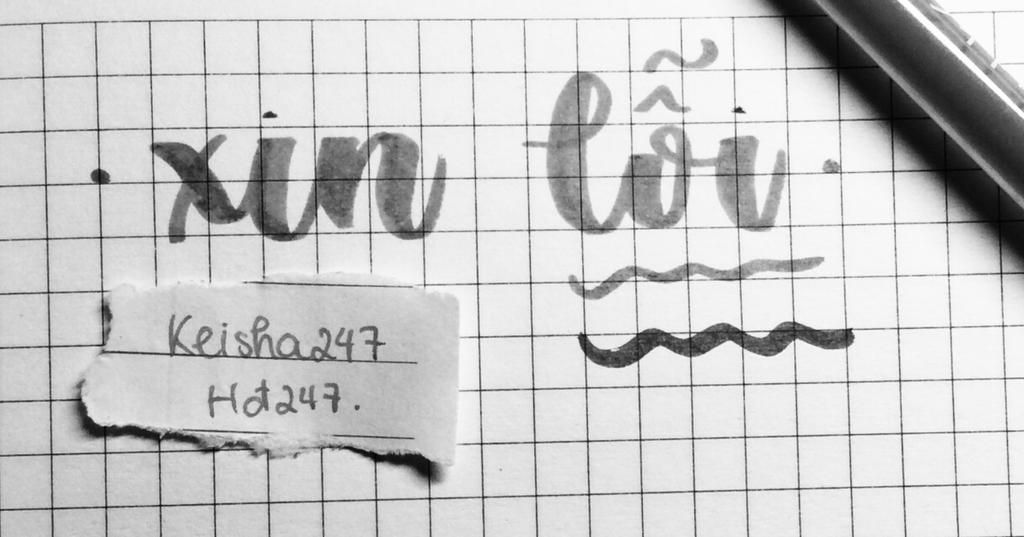 xin lỗi
Keisha247
Hot247.